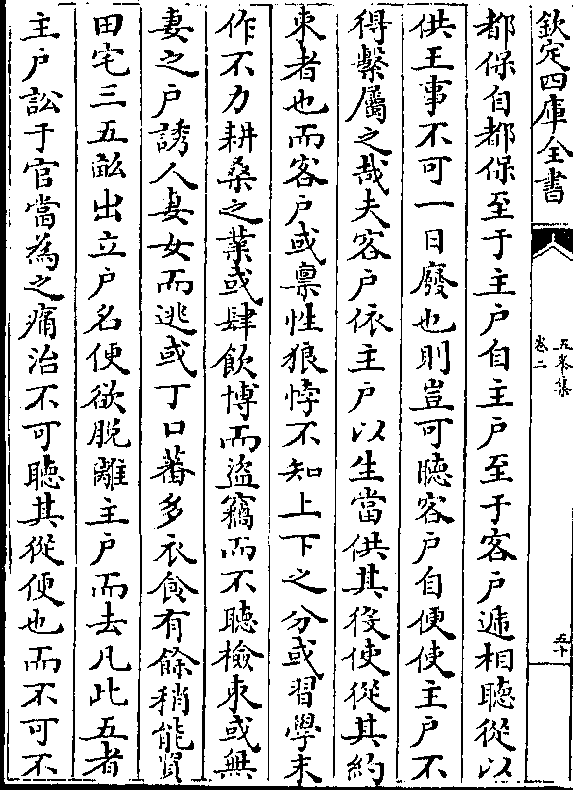 欽定四庫全書
五峯集
卷二
五十
都保自都保至于主户自主户至于客户遞相聽從以
供王事不可一日廢也則豈可聽客户自便使主户不
得繫屬之哉夫客户依主户以生當供其役使從其約
束者也而客户或禀性狼悖不知上下之分或習學末
作不力耕桑之業或肆飲博而盜竊而不聽檢束或無
妻之户誘人妻女而逃或丁口蕃多衣食有餘稍能買
田宅三五畝出立户名便欲脱離主户而去凡此五者
主户訟于官當為之痛治不可聽其從便也而不可不